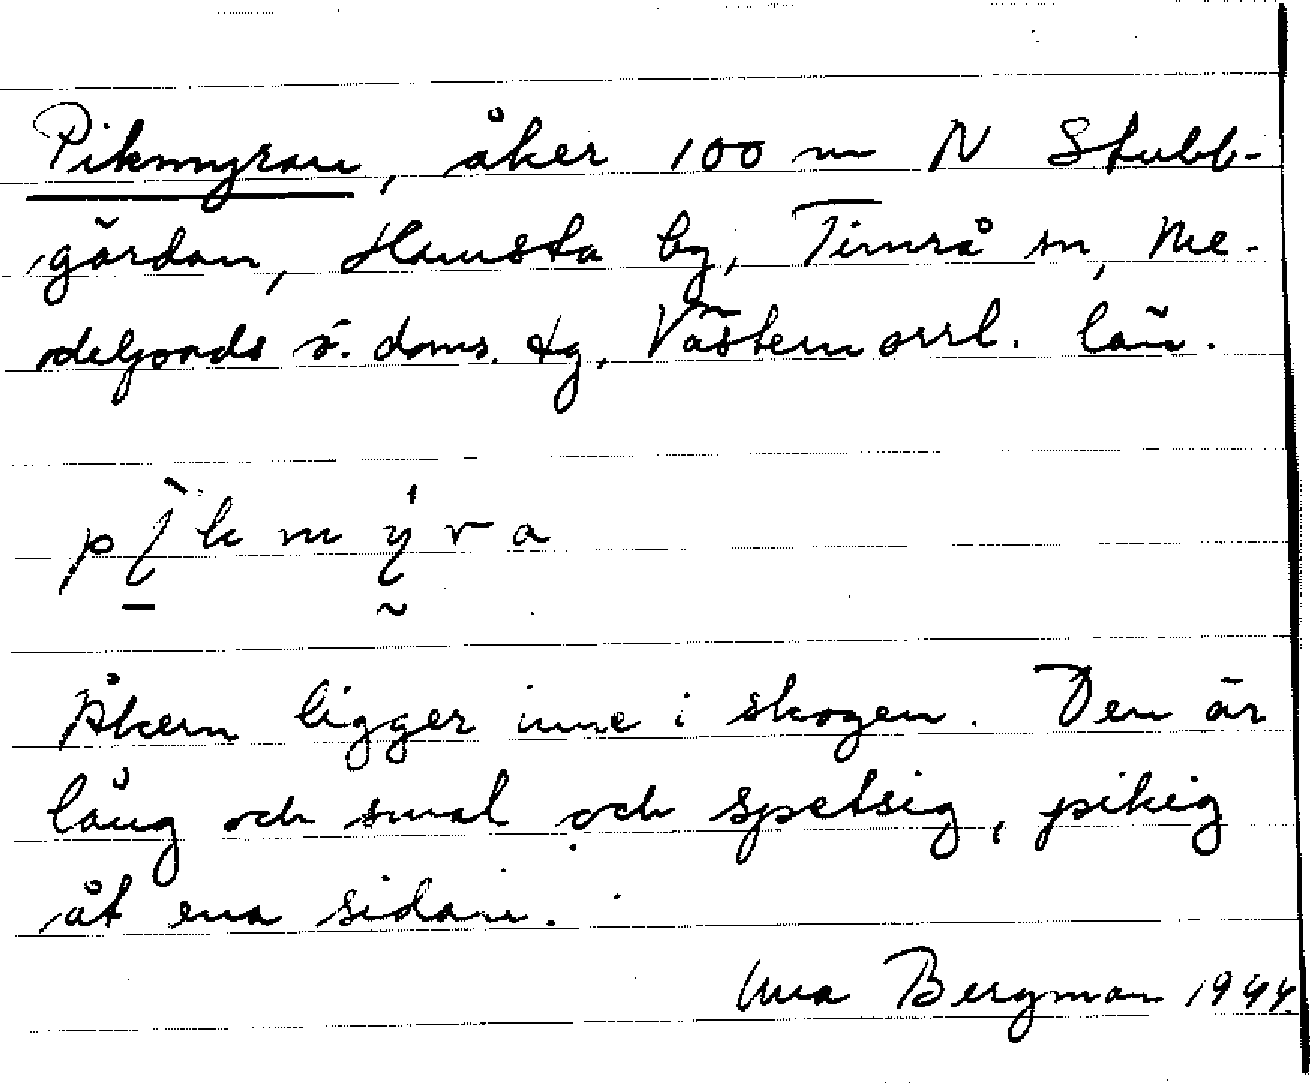 Pikmyran, åker 100 m N Stubb-
gärdan, Hamsta by, Timrå sn, Me-
delpads ö. doms. tg, Västernorrl. län.
pìkmýra
Åkern ligger inne i skogen. Den är
lång och smal och spetsig, pikig
åt ena sidan.
Una Bergman 1944.